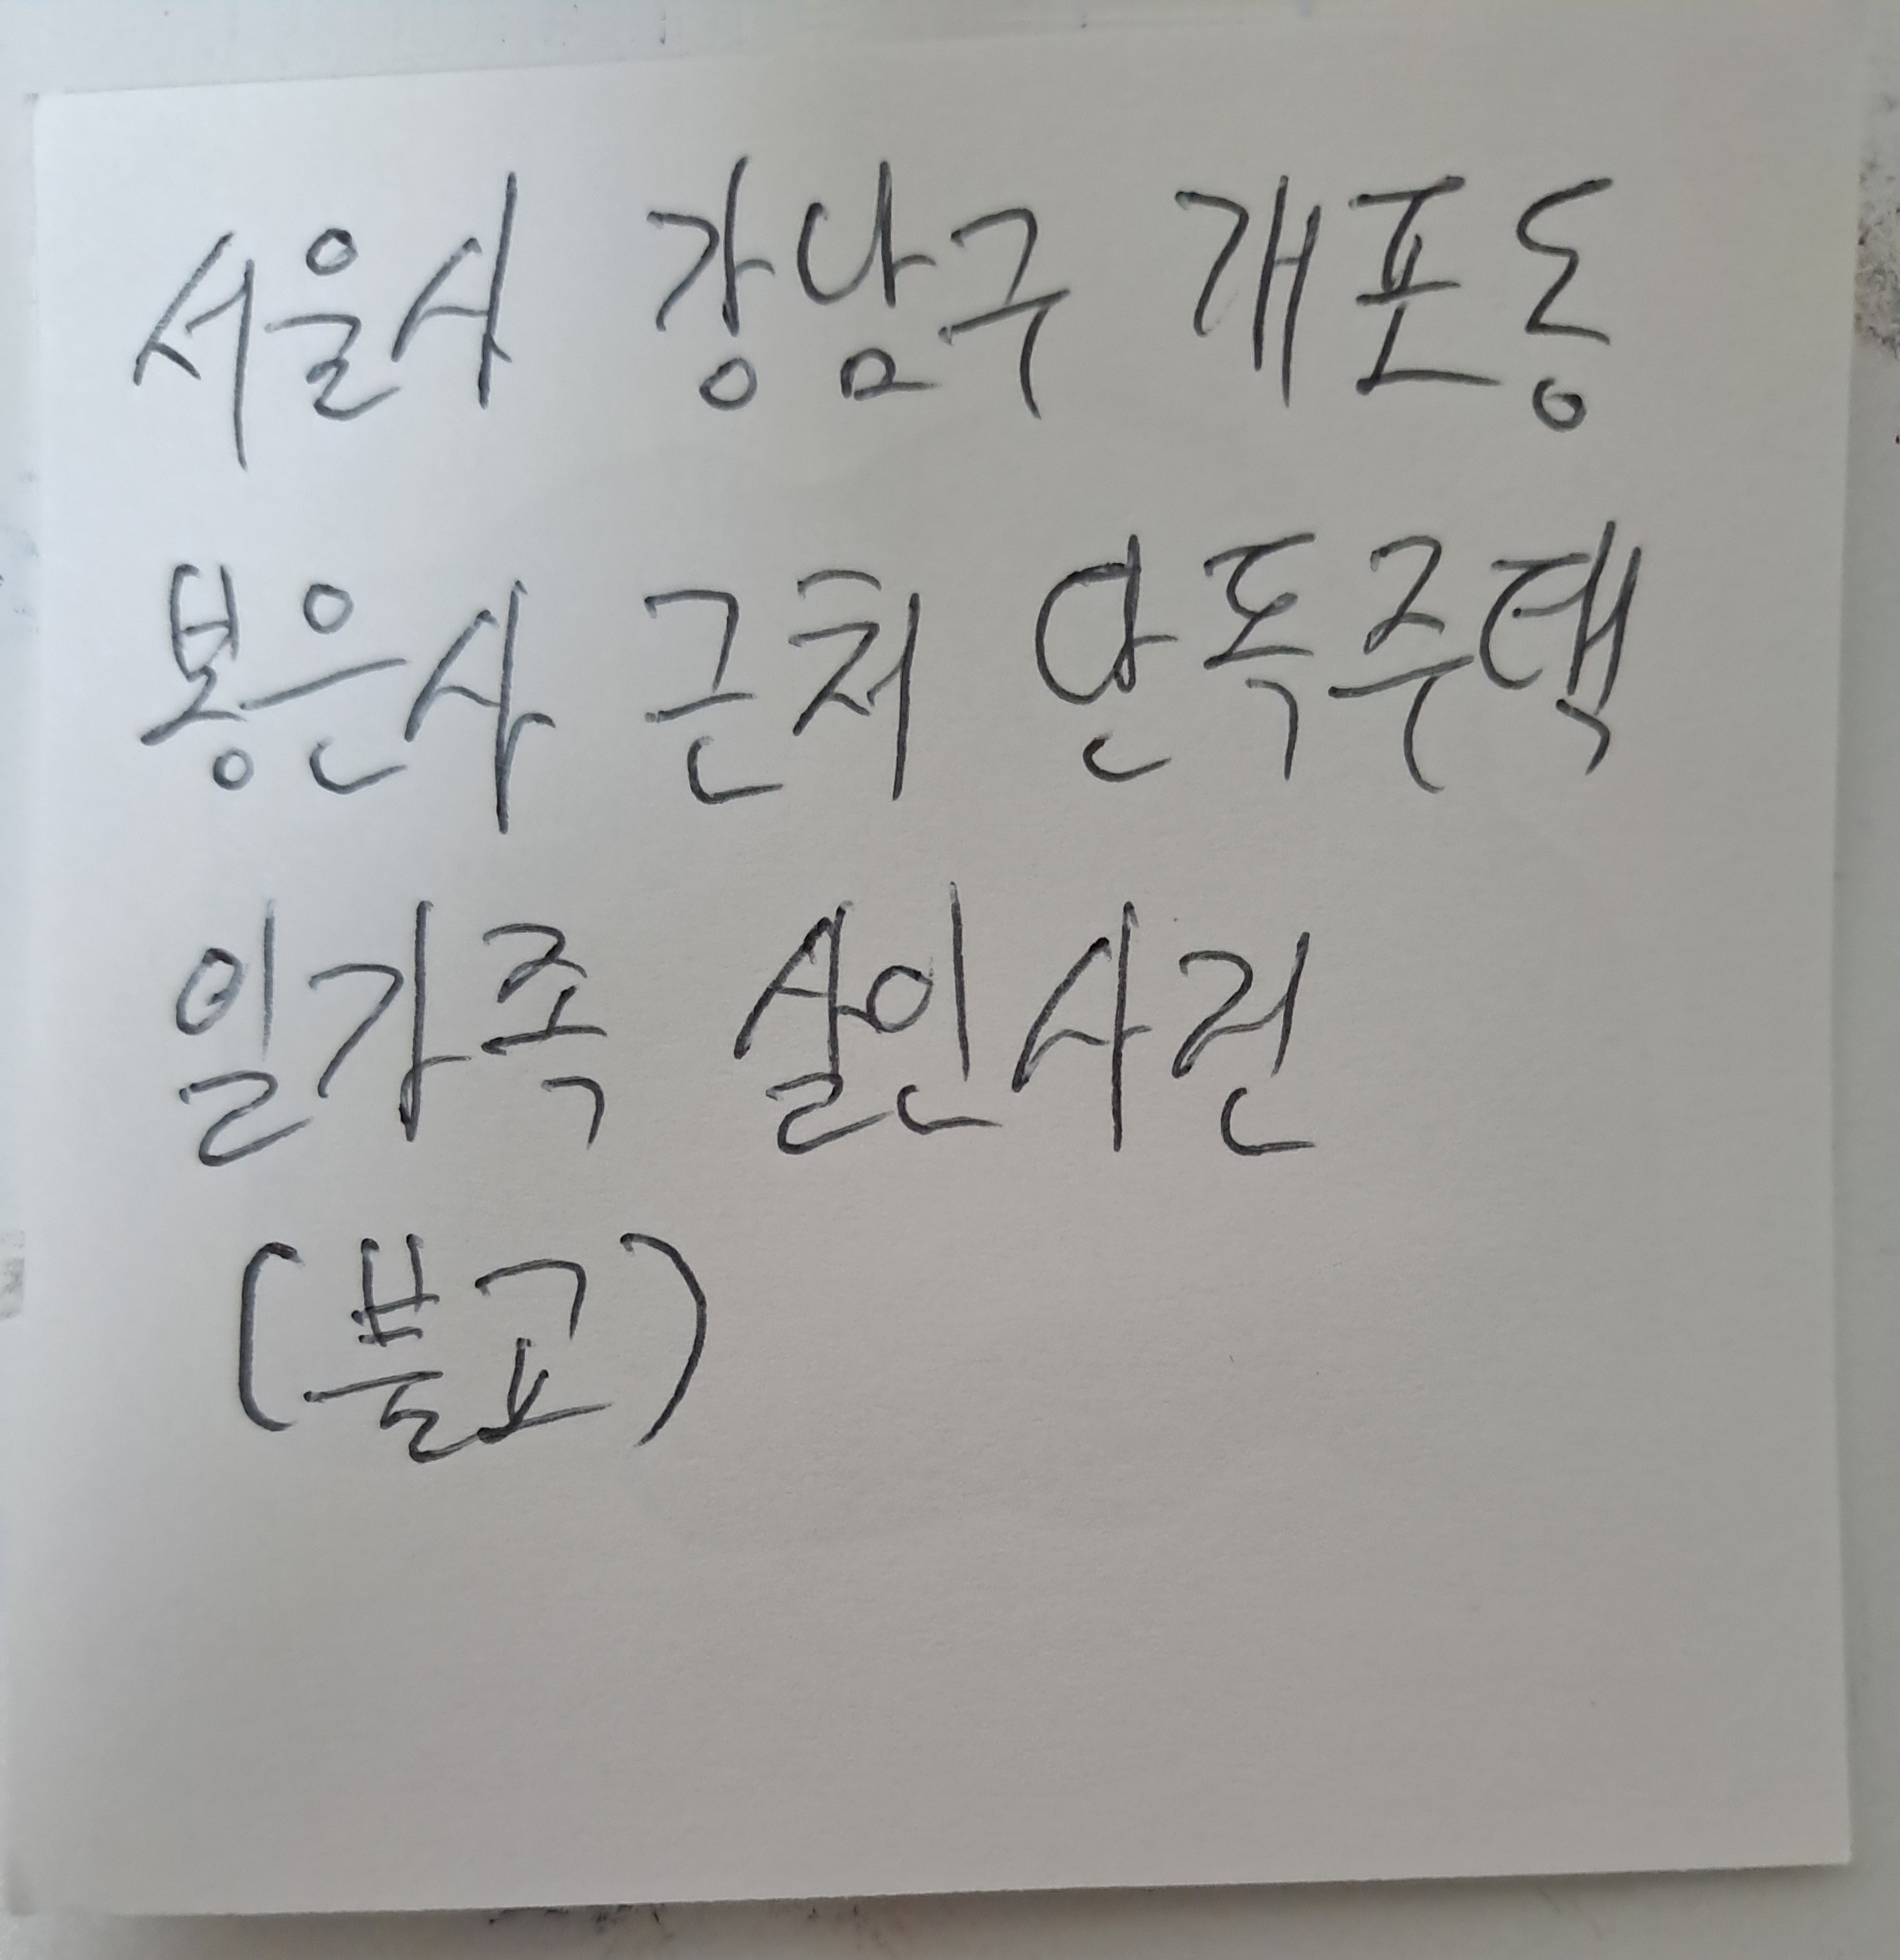 서울시 강남구 개포동
봉은사 근처 단독주택
일가족 살인사건
(불교)